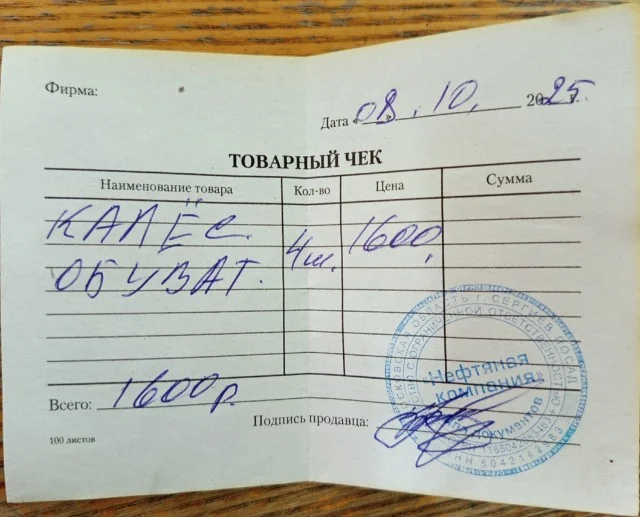 Фирма:
Дата « 08 . 10. 2025 г.
ТОВАРНЫЙ ЧЕК
Наименование товара Кол-во Цена Сумма
КАЛЁС. 4ш. 1600,
ОБУВАТ.
Всего: 1600р
Подпись продавца:
100 листов
МОСКОВСКАЯ ОБЛАСТЬ г. СЕРГИЕВ ПОСАД
ОБЩЕСТВО С ОГРАНИЧЕННОЙ ОТВЕТСТВЕННОСТЬЮ
«Нефтяная
компания»
для документов